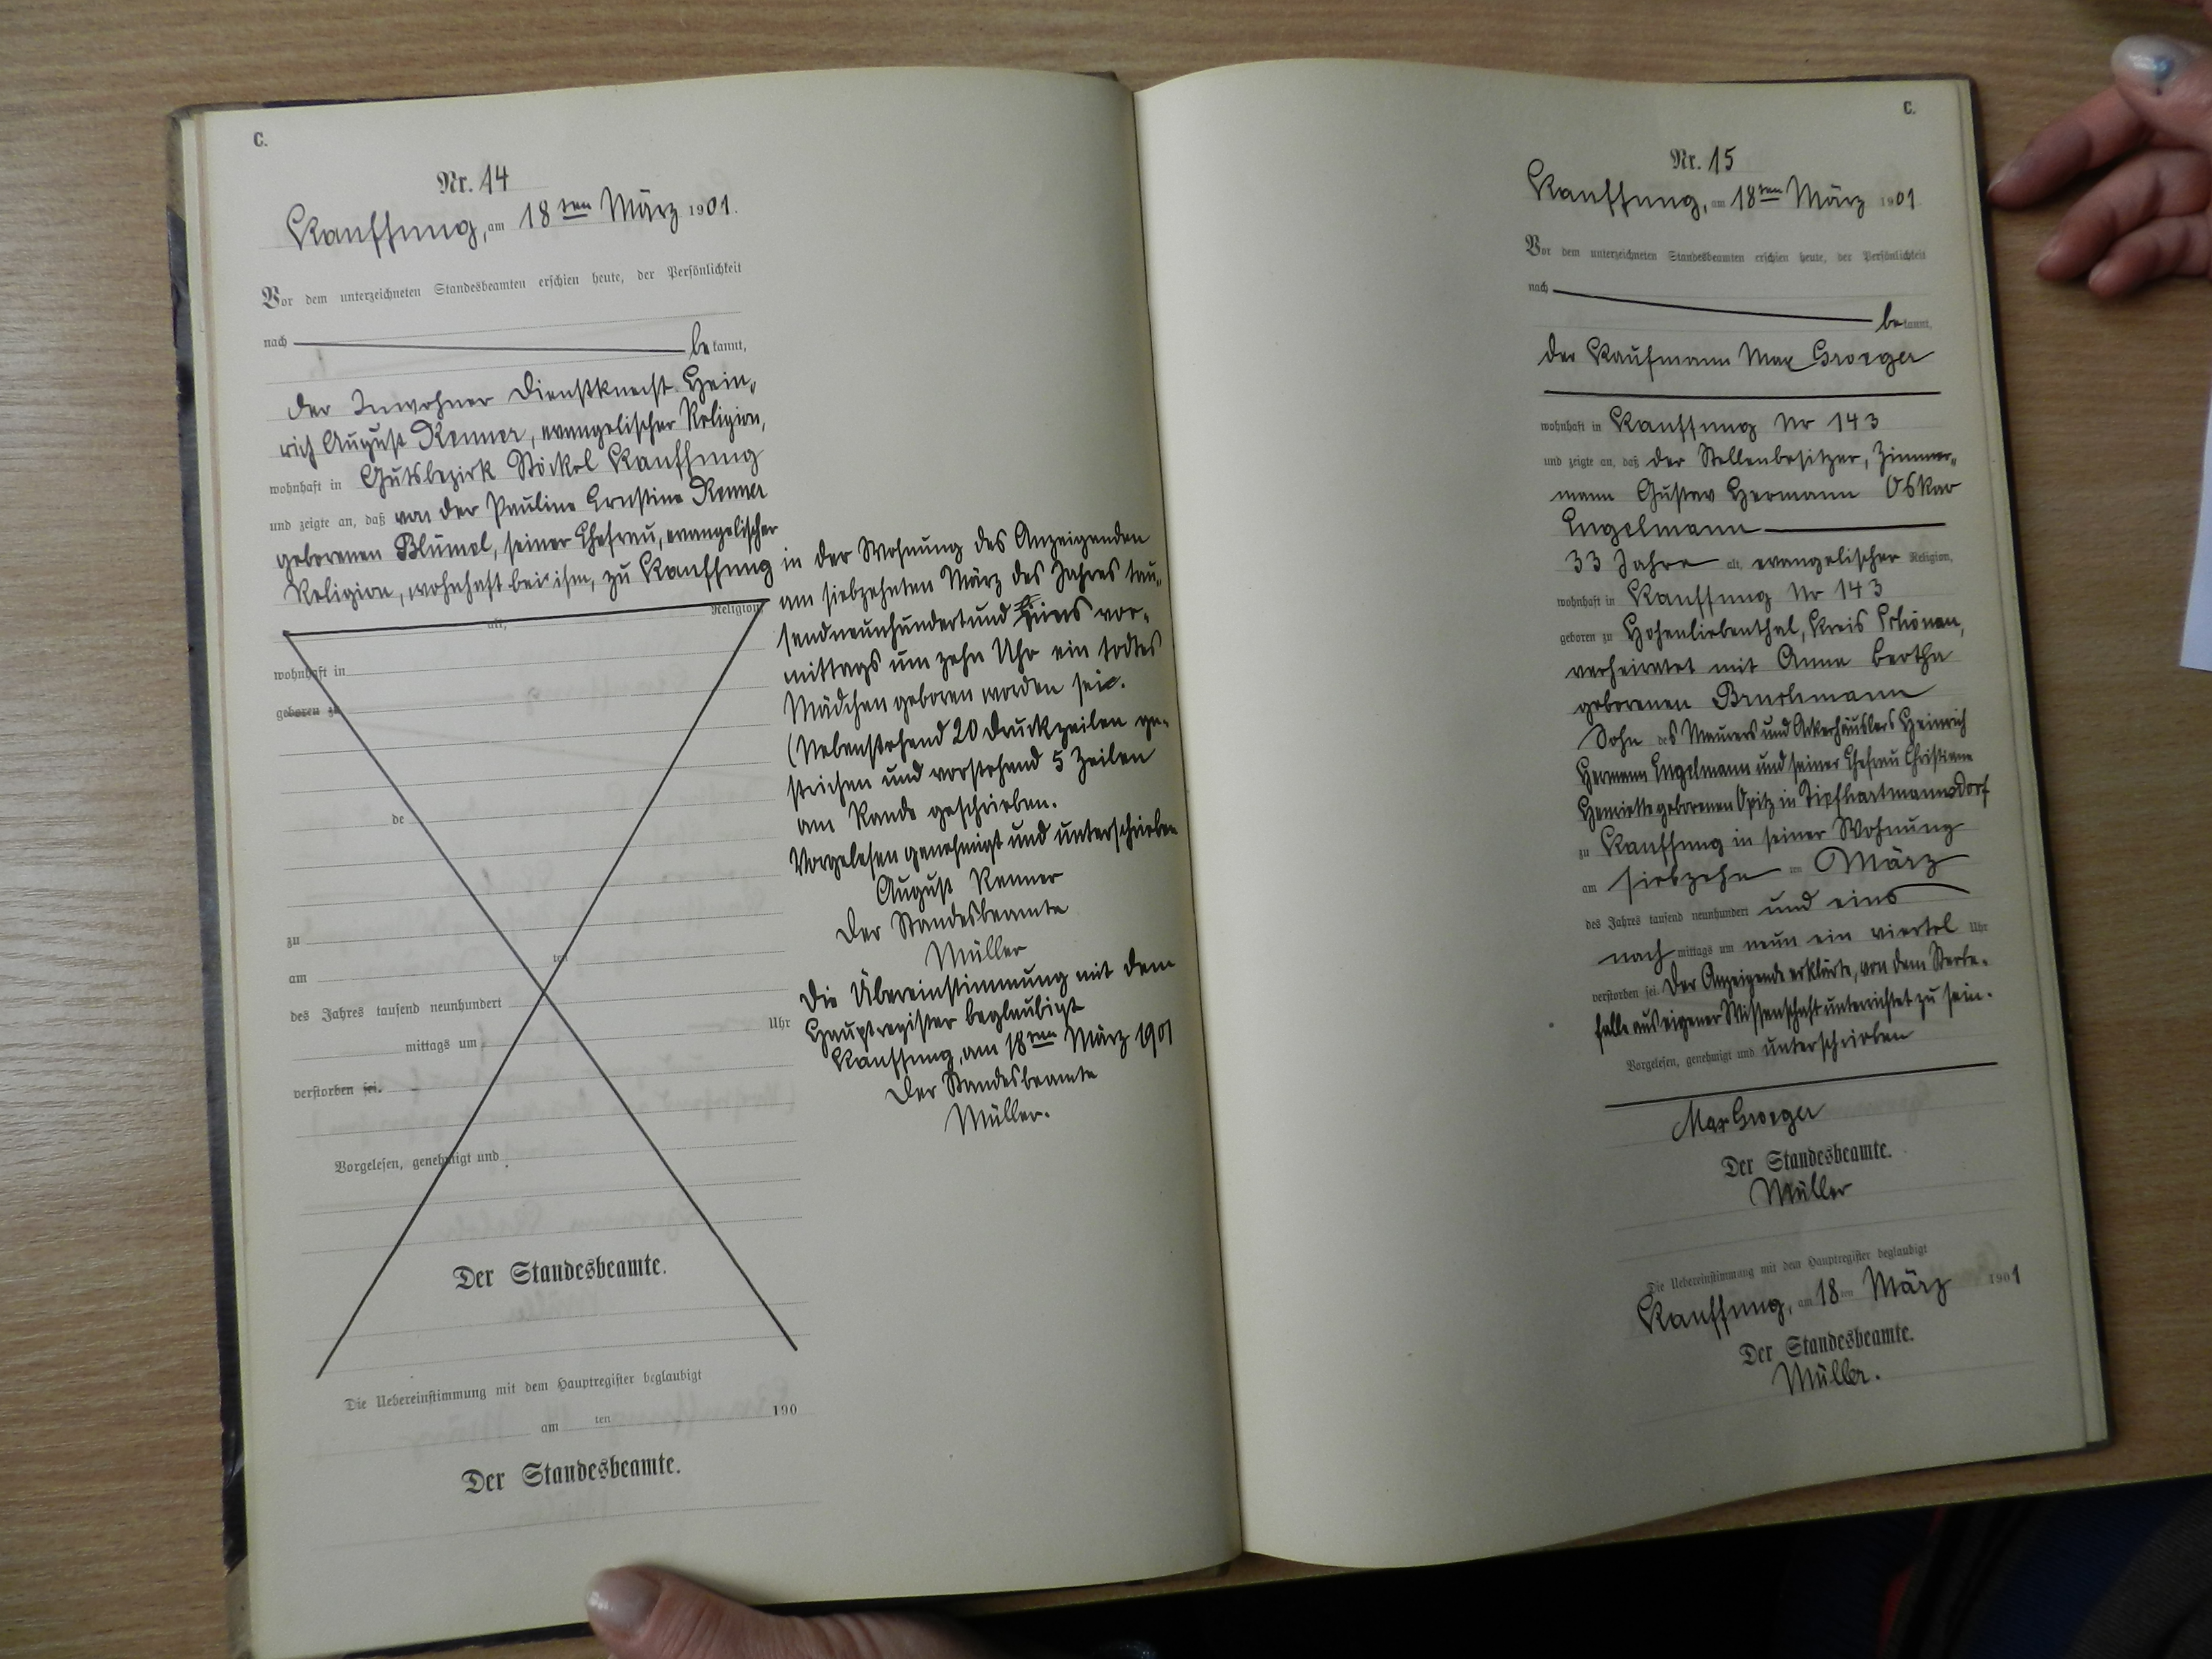 C.
Nr. 14
Kauffung, am 18ten März 1901.
Vor dem unterzeichneten Standesbeamten erschien heute, der Persönlichkeit
nach bekannt,
der Inwohner Dienstknecht Hein-
rich August Renner, evangelischer Religion,
wohnhaft in Gutsbezirk Stöckel Kauffung
und zeigte an, daß von der Pauline Ernstine Renner
geborenen Blümel, seiner Ehefrau, evangelischer
Religion, wohnhaft bei ihm, zu Kauffung
alt, Religion,
wohnhaft in
geboren zu
de
zu
am ten
des Jahres tausend neunhundert
mittags um Uhr
verstorben sei.
Vorgelesen, genehmigt und
Der Standesbeamte.
Die Uebereinstimmung mit dem Hauptregister beglaubigt
am ten 190
Der Standesbeamte.
in der Wohnung des Anzeigenden
am siebzehnten März des Jahres tau-
sendneunhundertund eins vor-
mittags um zehn Uhr ein todtes
Mädchen geboren worden sei.
(Nebenstehend 20 Druckzeilen ge-
strichen und vorstehend 5 Zeilen
am Rande geschrieben.
Vorgelesen genehmigt und unterschrieben
August Renner
Der Standesbeamte
Müller
Die Übereinstimmung mit dem
Hauptregister beglaubigt
Kauffung, am 18ten März 1901
Der Standesbeamte
Müller.
C.
Nr. 15
Kauffung, am 18ten März 1901
Vor dem unterzeichneten Standesbeamten erschien heute, der Persönlichkeit
nach bekannt,
der Kaufmann Max Groeger
wohnhaft in Kauffung Nr 143
und zeigte an, daß der Stellenbesitzer, Zimmer-
mann Gustav Hermann Oskar
Engelmann
33 Jahre alt, evangelischer Religion,
wohnhaft in Kauffung Nr 143
geboren zu Hohenliebenthal, Kreis Schönau,
verheiratet mit Anna Bertha
geborenen Bruchmann
Sohn des Maurers und Ackerhäuslers Heinrich
Hermann Engelmann und seiner Ehefrau Christiane
Henriette geborenen Opitz in Tiefhartmannsdorf
zu Kauffung in seiner Wohnung
am siebzehn ten März
des Jahres tausend neunhundert und eins
nach mittags um neun ein viertel Uhr
verstorben sei. Der Anzeigende erklärte, von dem Sterbe-
falle aus eigener Wissenschaft unterrichtet zu sein.
Vorgelesen, genehmigt und unterschrieben
Max Groeger
Der Standesbeamte.
Müller
Die Uebereinstimmung mit dem Hauptregister beglaubigt
Kauffung, am 18ten März 1901
Der Standesbeamte.
Müller.